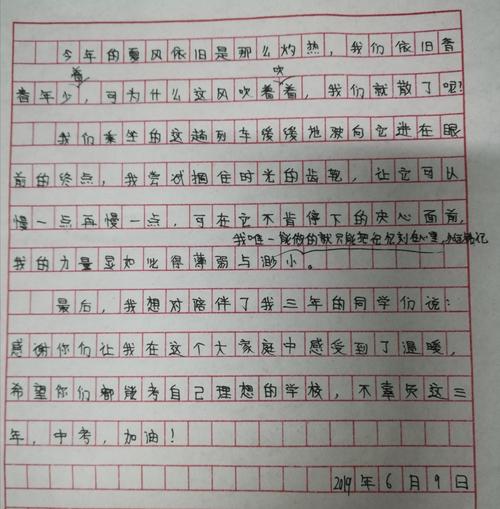 今年的夏风依旧是那么灼热,我们依旧青
吹
春年少,可为什么这风吹着着,我们就散了呢?
我们乘坐的这趟列车缓缓地驶向它进在眼
前的终点,我尝试捆住时光的齿轮,让它可以
慢一点再慢一点,可在它不肯停下的决心面前,
我唯一能做的就只能把它刻在心里,永远铭记
我的力量显如此得薄弱与渺小。
最后,我想对陪伴了我三年的同学们说:
感谢你们让我在这个大家庭中感受到了温暖,
希望你们都能考自己理想的学校,不辜负这三
年,中考,加油!
2019年6月9日